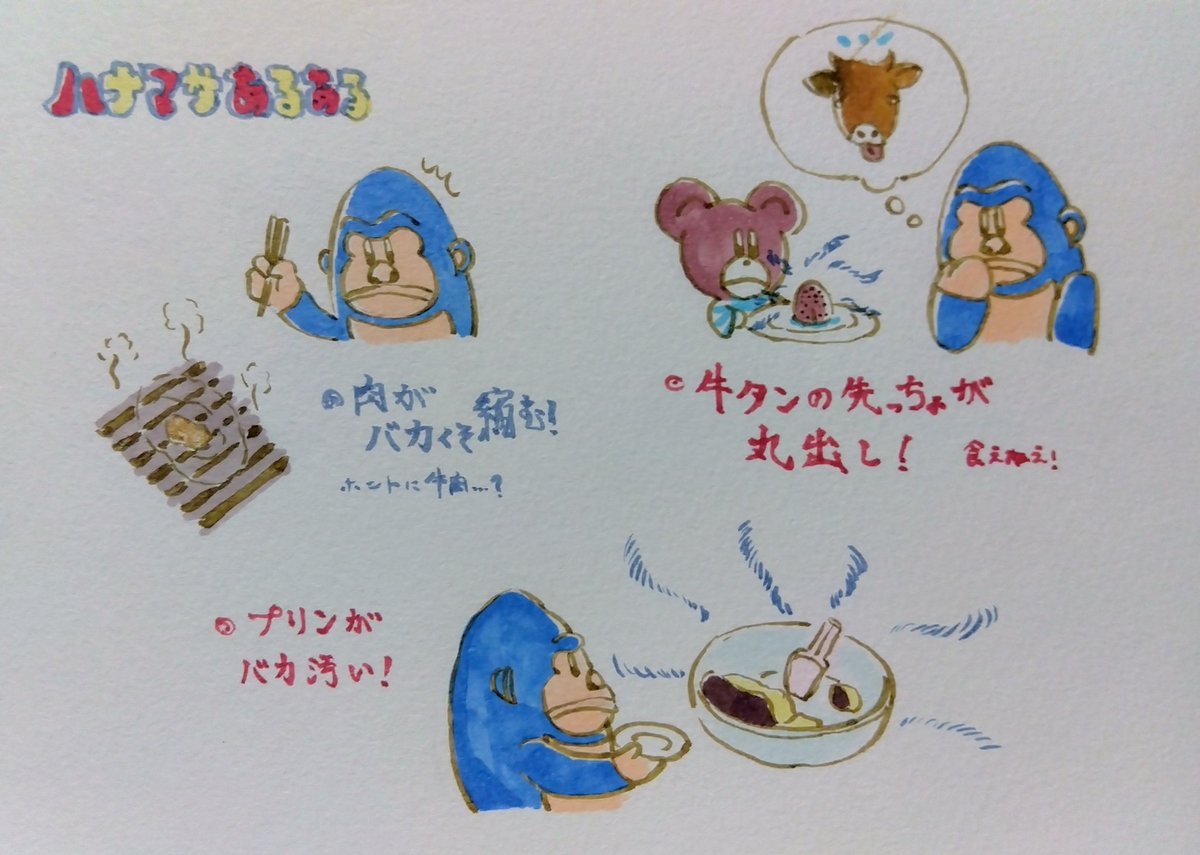 ハナマサあるある
肉が
バカくそ縮む!
ホントに牛肉…?
牛タンの先っちょが
丸出し!
食えねえ!
プリンが
バカ汚い!